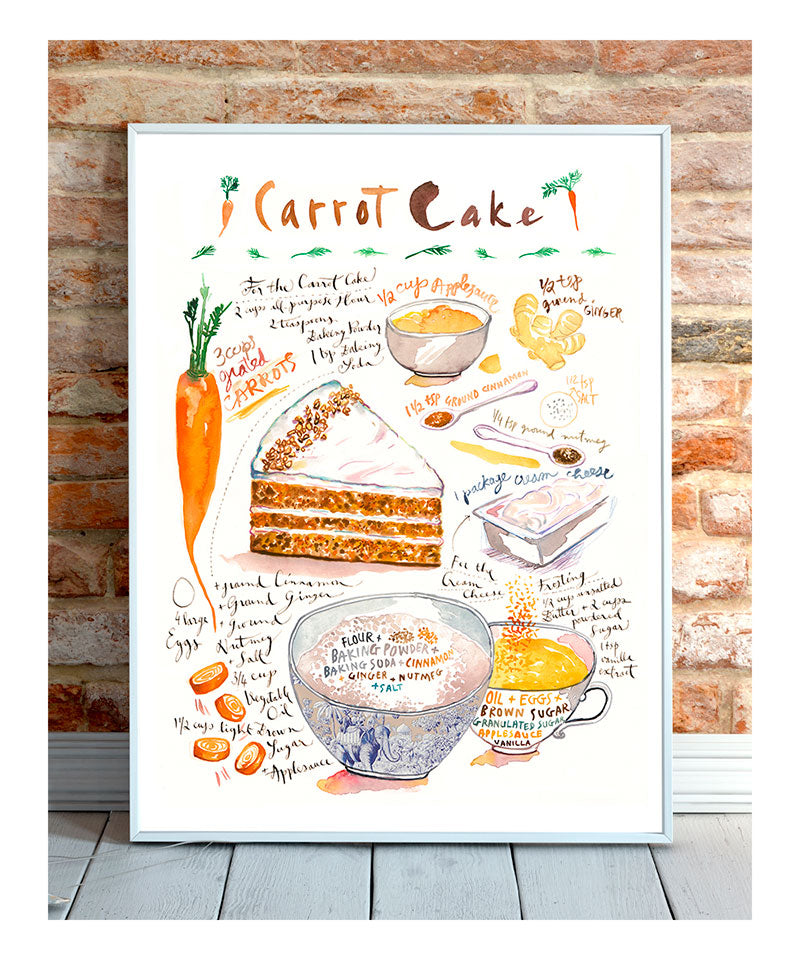 Carrot Cake
For the Carrot Cake
2 cups all purpose flour
2 teaspoons
Baking Powder
1 tsp Baking
Soda
1/2 cup Applesauce
1/2 tsp
ground
GINGER
3 cups
grated
CARROTS
1 1/2 tsp GROUND CINNAMON
1/2 tsp
SALT
1/4 tsp ground nutmeg
1 package cream cheese
+ground Cinnamon
+Ground Ginger
+Ground
Nutmeg
+ Salt
4 large
Eggs
3/4 cup
Vegetable
Oil
1 1/2 cups light Brown
Sugar
+Applesauce
For the
Cream
Cheese
Frosting
1/2 cup unsalted
Butter + 2 cups
powdered
Sugar
1 tsp
vanilla
extract
FLOUR +
BAKING POWDER +
BAKING SODA + CINNAMON
+ GINGER + NUTMEG
+ SALT
OIL + EGGS +
BROWN SUGAR
GRANULATED SUGAR
APPLESAUCE
VANILLA